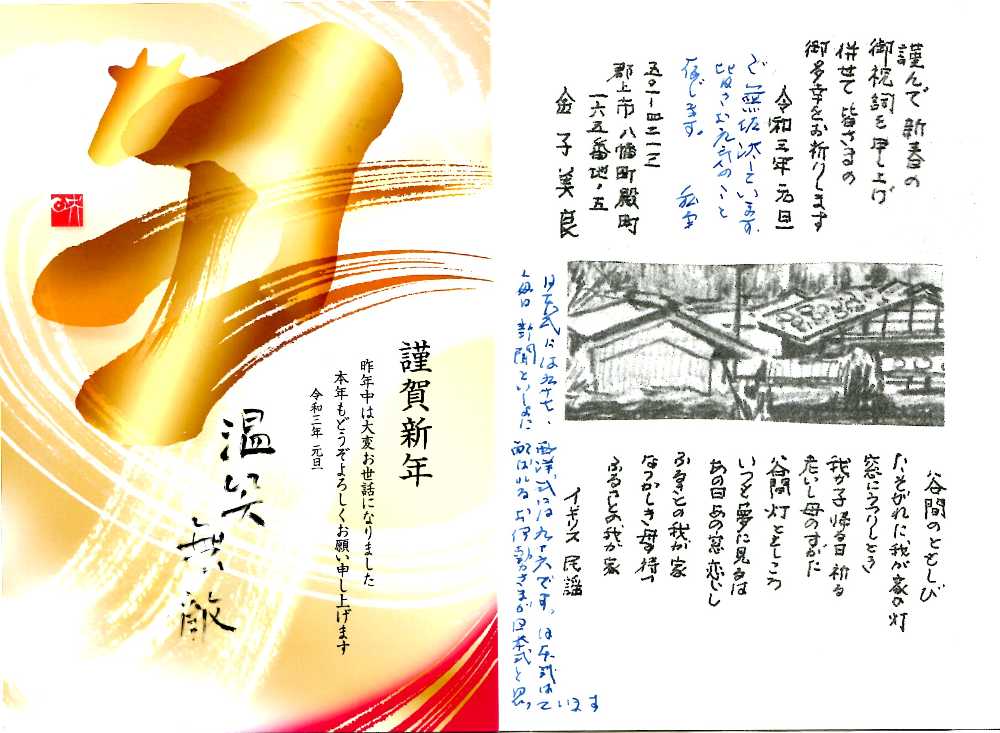 謹賀新年
昨年中は大変お世話になりました
本年もどうぞよろしくお願い申し上げます
令和三年 元旦
温笑
無敵
謹んで新春の
御祝詞を申し上げ
併せて皆さまの
御多幸をお祈りします
令和三年元旦
ご無沙汰しています
皆さまお元気のこと
存じます。
五〇一-四二一二
郡上市八幡町殿町
一六五番地・五
金子美良
谷間のともしび
たそがれに我が家の灯
窓にうつりしとき
我が子帰る日祈る
老いし母のすがた
谷間灯ともしころ
いつも夢に見るは
あの日あの窓恋し
ふるさとの我が家
なつかしき母待つ
ふるさとの我が家
イギリス民謡
日本式には九十七、西洋式には九十六です。日本式は
毎日新聞といっしょに配ばれるお伊勢さまが日本式と思っています